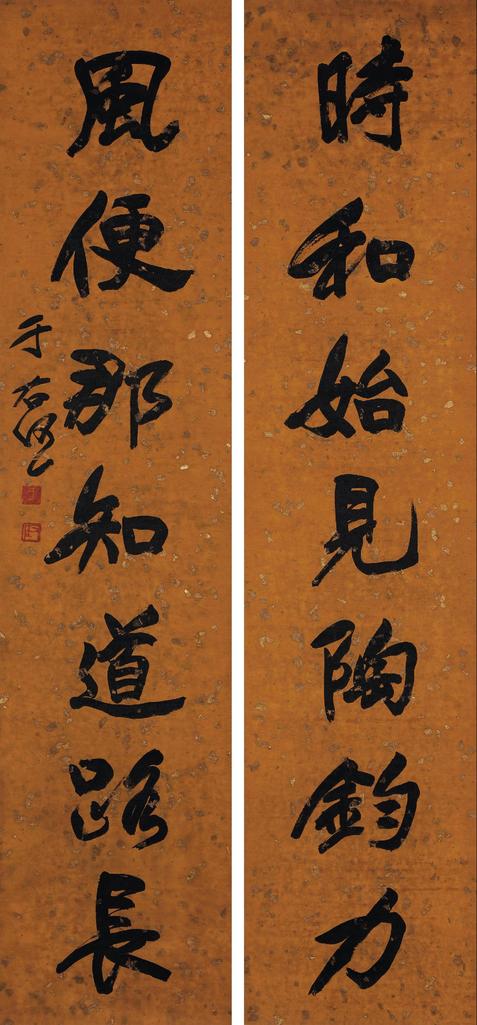 時和始見陶鈞力
風便那知道路長